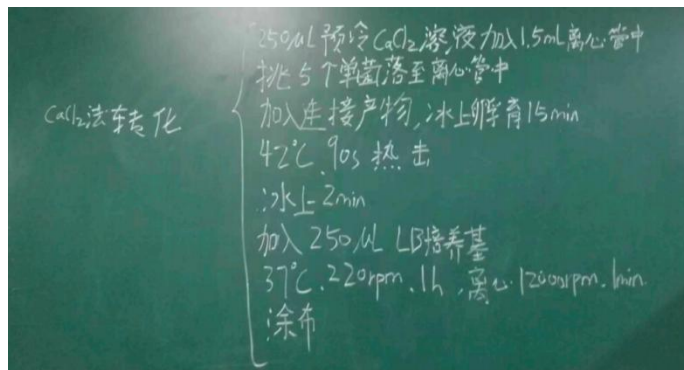 250μL预冷CaCl₂溶液加入1.5mL离心管中
挑5个单菌落至离心管中
CaCl₂法转化
加入连接产物,冰上孵育15min
42℃.90s热击
冰上2min
加入250μL LB培养基
37℃.220rpm.1h,离心12000rpm.1min.
涂布